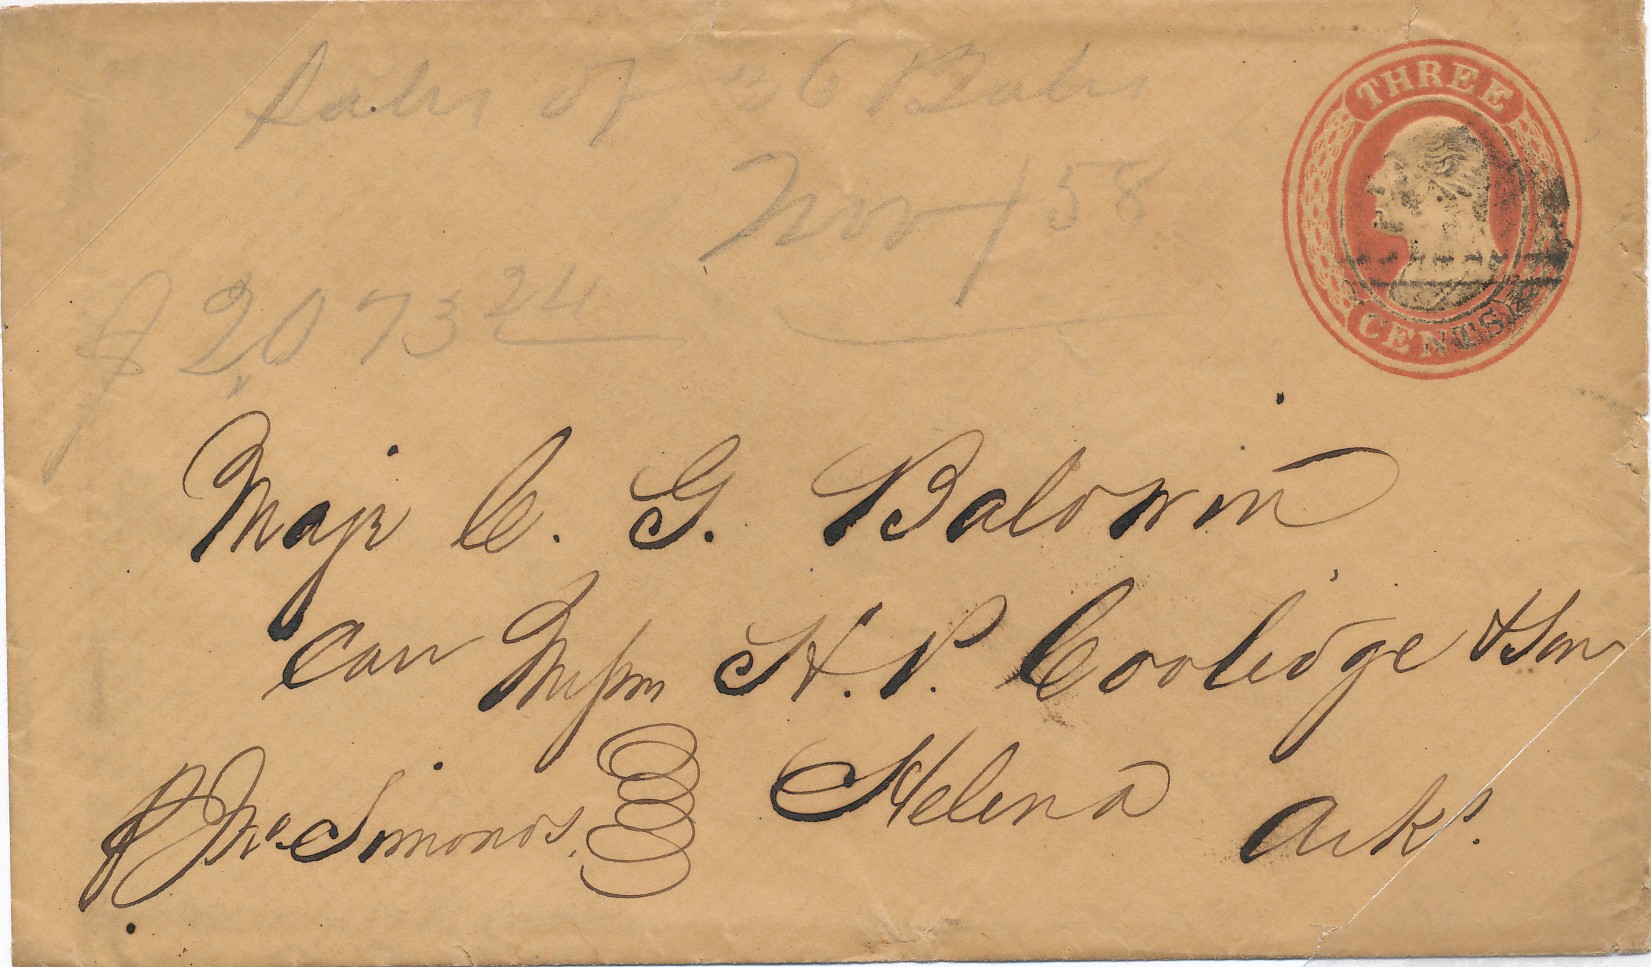 Sales of 36 Bales
Nov / 58
$2,073 24
THREE
CENTS
Majr C. G. Baldwin
Care Messrs H. P. Coolidge & Son
Helena Arks.
Simonds.